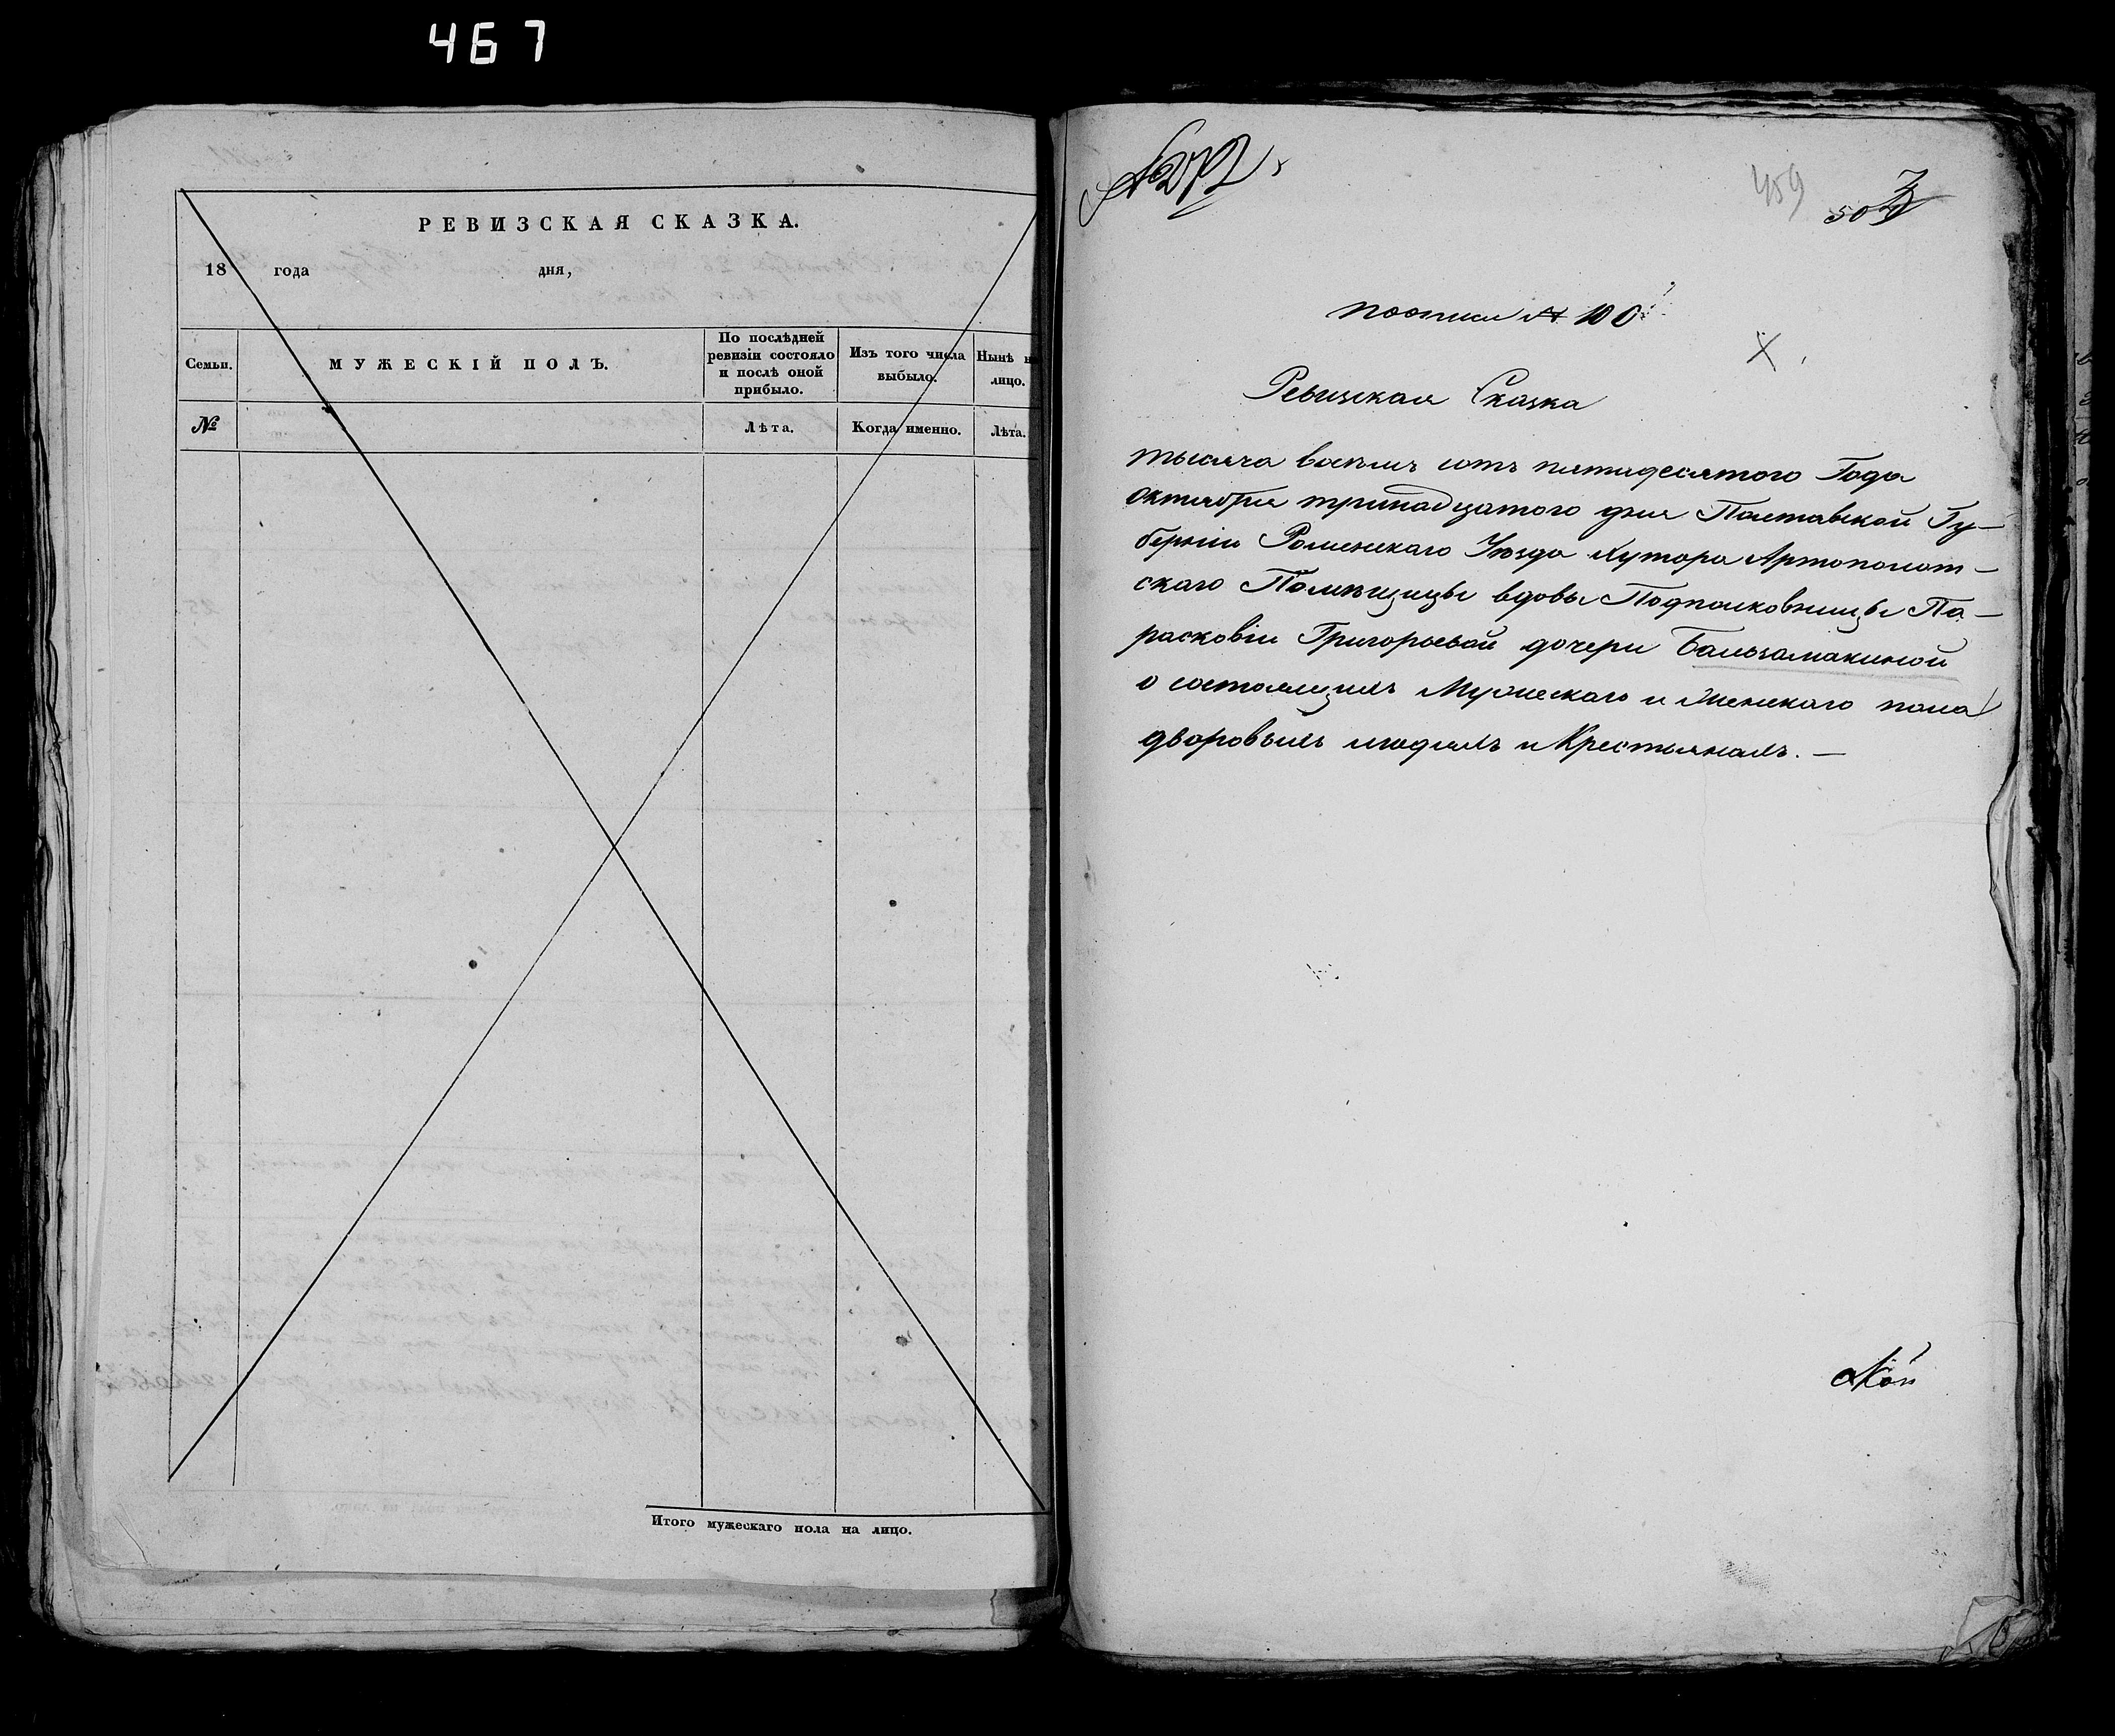 467
РЕВИЗСКАЯ СКАЗКА.
18 года дня,
Семьи.
МУЖЕСКІЙ ПОЛЪ.
По послѣдней
ревизіи состояло
и послѣ оной
прибыло.
Изъ того числа
выбыло.
Нынѣ на
лицо.
№
Лѣта.
Когда именно.
Лѣта.
Итого мужескаго пола на лицо.
459
по описи № 100
Ревизская Сказка
тысяча восемь сотъ пятидесятого Года
октября тринадцатого дня Полтавской Гу-
берніи Роменскаго Уѣзда Хутора Артополот-
скаго Помѣщицы вдовы Подполковницы Па-
расковіи Григорьевой дочери Бальзамакиной
о состоящихъ Мужескаго и Женскаго пола
дворовымъ людямъ и Крестьянамъ. —